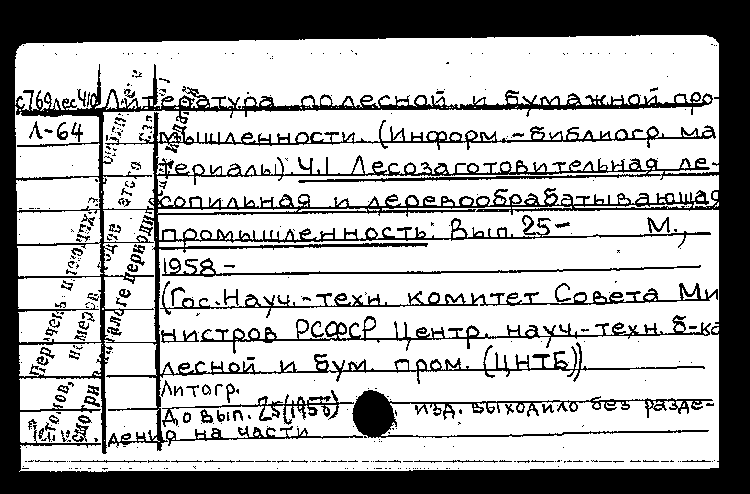 с769лес4/0 Литература по лесной и бумажной про-
Л-64 мышленности. (Информ.-библиогр. ма
териалы). Ч.1. Лесозаготовительная, ле-
сопильная и деревообрабатывающая
промышленность: Вып. 25- М.,
1958-
(Гос. Науч.-техн. комитет Совета Ми
нистров РСФСР. Центр. науч.-техн. б-ка
лесной и бум. пром. (ЦНТБ)).
Литогр.
До вып. 25(1958) изд. выходило без разде-
ления на части
Перечень имеющихся в библиотеке
томов, номеров, годов этого издания
смотри в каталоге периодических изданий